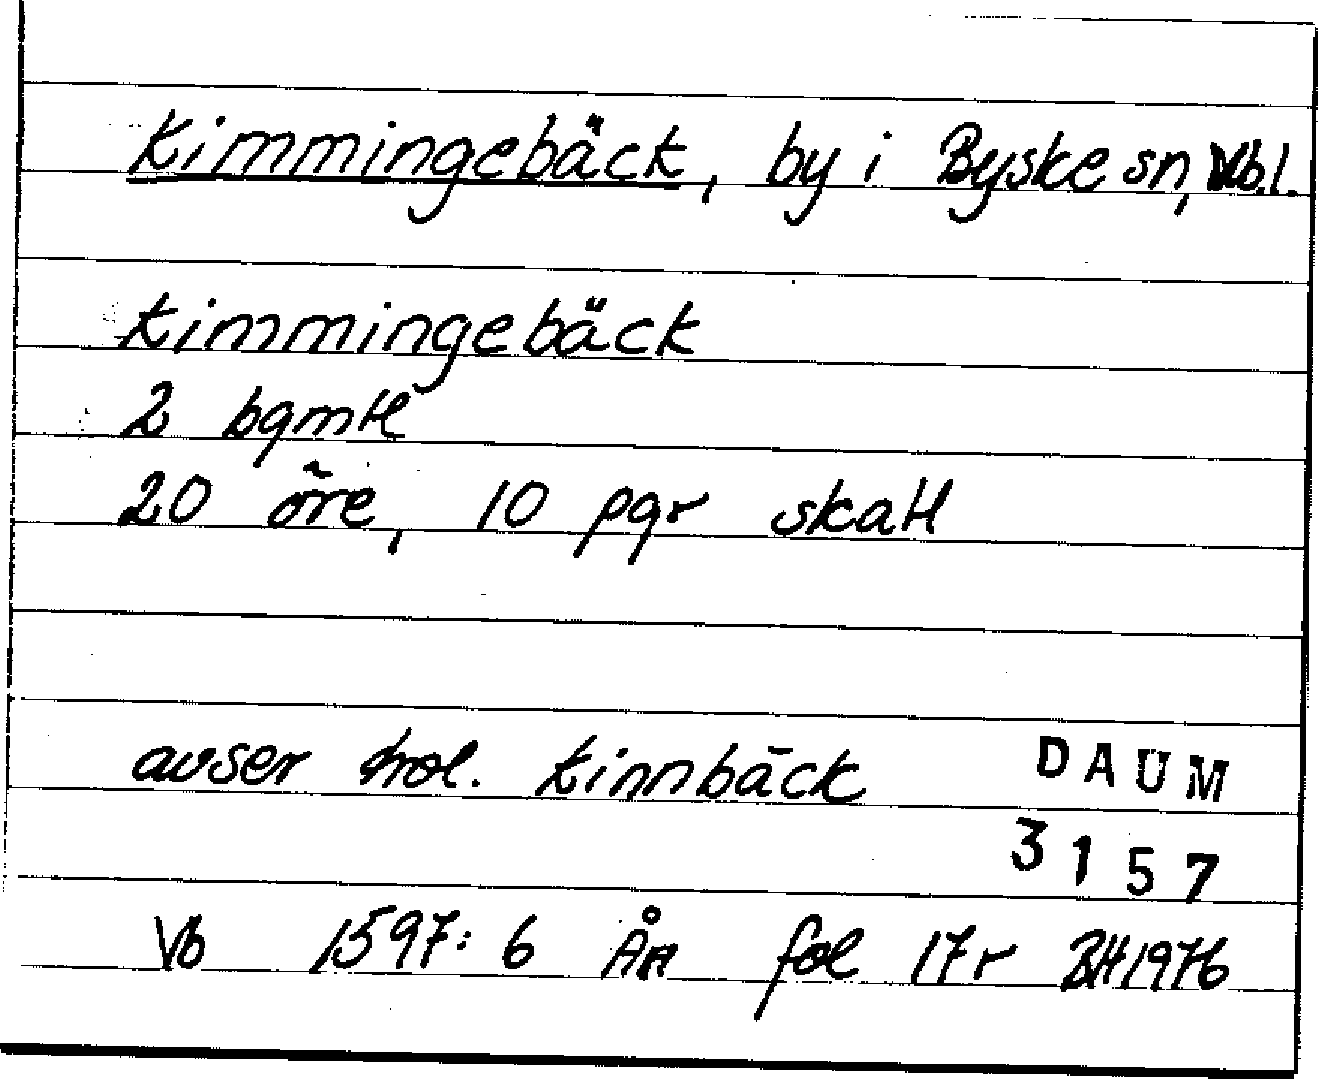 Kimmingebäck, by i Byske sn, Vb.l.
Kimmingebäck
2 bgmtl
20 öre, 10 pgr skatt
avser trol. Kinnbäck
DAUM
3157
Vb 1597:6 ÅH fol 17r BH1976